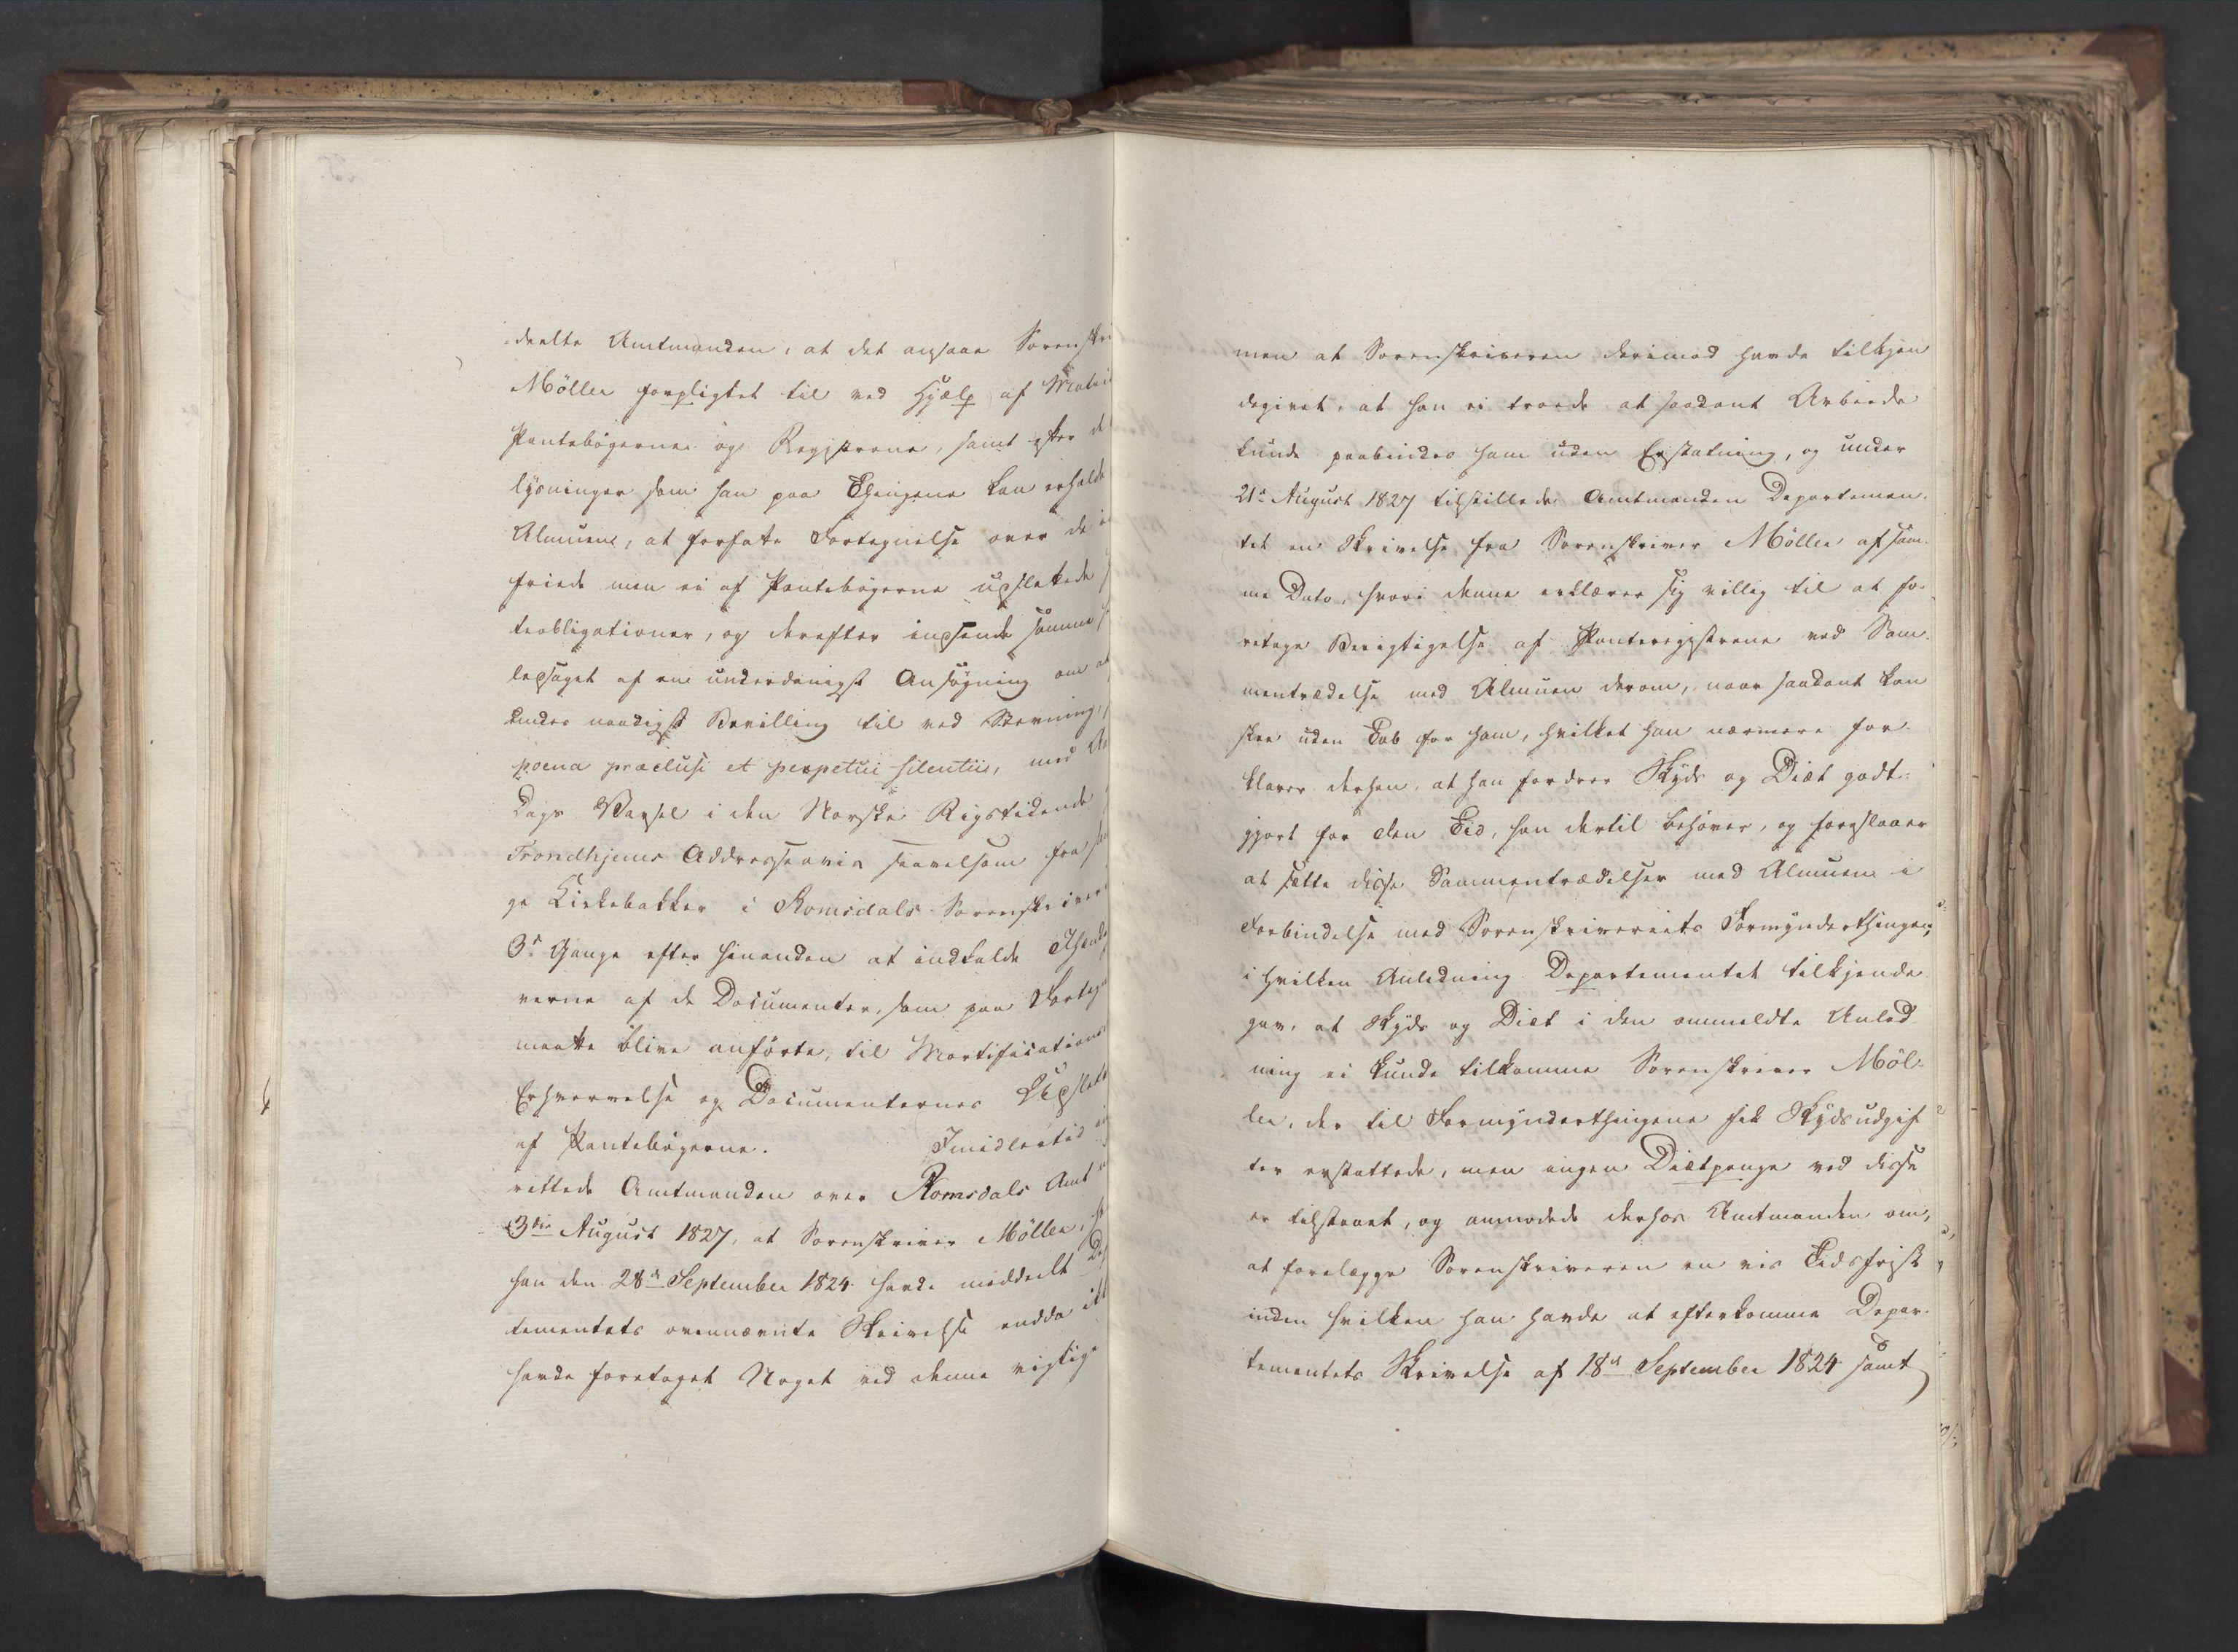 deelte Amtmanden, at det ansaae Sorenskri
Møller forpligtet til ved Hjælp af Matri
Pantebøgerne og Registrene, samt efter de
lysninger som han paa Thingene kan erholde
Almuen, at forfatte Fortegnelse over de i
friede men ei af Pantebøgerne udslettede
teobligationer, og derefter indsende samme
ledsaget af en underdanigst Ansøgning om at
naadigst Bevilling til ved Stevning,
poena præclusi et perpetui silentii, med
Dags Varsel i den Norske Rigstidende
Trondhjems Addresseavis saavelsom fra
ge Kirkebakker i Romsdals Sorenskriver
3de Gange efter hinanden at indkalde Ihænde
verne af de Documenter, som paa Forteg
maatte blive anførte, til Mortifications
Erhvervelse og Documenternes Udslett
af Pantebøgerne. Imidlertid
rettede Amtmanden over Romsdals Amt
3die August 1827, at Sorenskriver Møller,
han den 28de September 1824 havde meddeelt De
tementets ovennævnte Skrivelse endda ikk
havde foretaget Noget ved denne vigtige
men at Sorenskriveren derimod havde tilkjen
degivet, at han ei troede at saadant Arbeide
kunde paabindes ham uden Erstatning, og under
21de August 1827 tilstillede Amtmanden Departemen-
tet en Skrivelse fra Sorenskriver Møller af sam-
me Dato, hvori denne erklærer sig villig til at fo-
retage Berigtigelse af Panteregistrene ved Sam-
mentrædelse med Almuen derom, naar saadant kan
skee uden Tab for ham, hvilket han nærmere for-
klarer derhen, at han fordrer Skyds og Diæt godt-
gjort for den Tid, han dertil behøver, og foreslaaer
at sætte disse Sammentrædelser med Almuen i
Forbindelse med Sorenskriveriets Formynderthinge,
i hvilken Anledning Departementet tilkjende-
gav, at Skyds og Diæt i den ommeldte Anled-
ning ei kunde tilkomme Sorenskriver Møl-
ler, der til Formynderthingene fik Skydsudgif
ter erstattede, men ingen Diætpenge ved disse
er tilstaaet, og anmodede derhos Amtmanden om,
at forelægge Sorenskriveren en vis Tidsfrist
inden hvilken han havde at efterkomme Depar-
tementets Skrivelse af 18de September 1824 samt